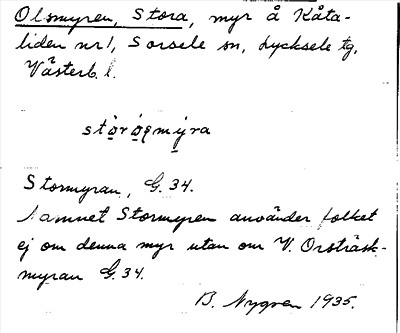 Olsmyren, Stora, myr å Kåta-
liden nr 1, Sorsele sn, Lycksele tg,
Västerb. l.
Stormyran, G. 34.
Namnet Stormyren använder folket
ej om denna myr utan om V. Orsträsk-
myran G. 34.
B. Nygren 1935.